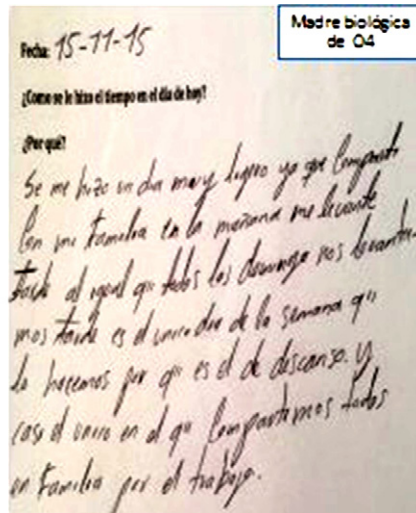 Madre biológica
de O4
Fecha: 15-11-15
¿Como se le hizo el tiempo en el día de hoy?
¿Por qué?
Se me hizo un dia muy ligero ya que Comparti
Con mi Familia en la mañana me levante
tarde al igual qu todos los domingo nos levanta
mos tarde es el unico dia de la semana qu
lo hacemos por qu es el de descanso. y
casi el unico en el qu Compartimos todos
en Familia por el trabajo.